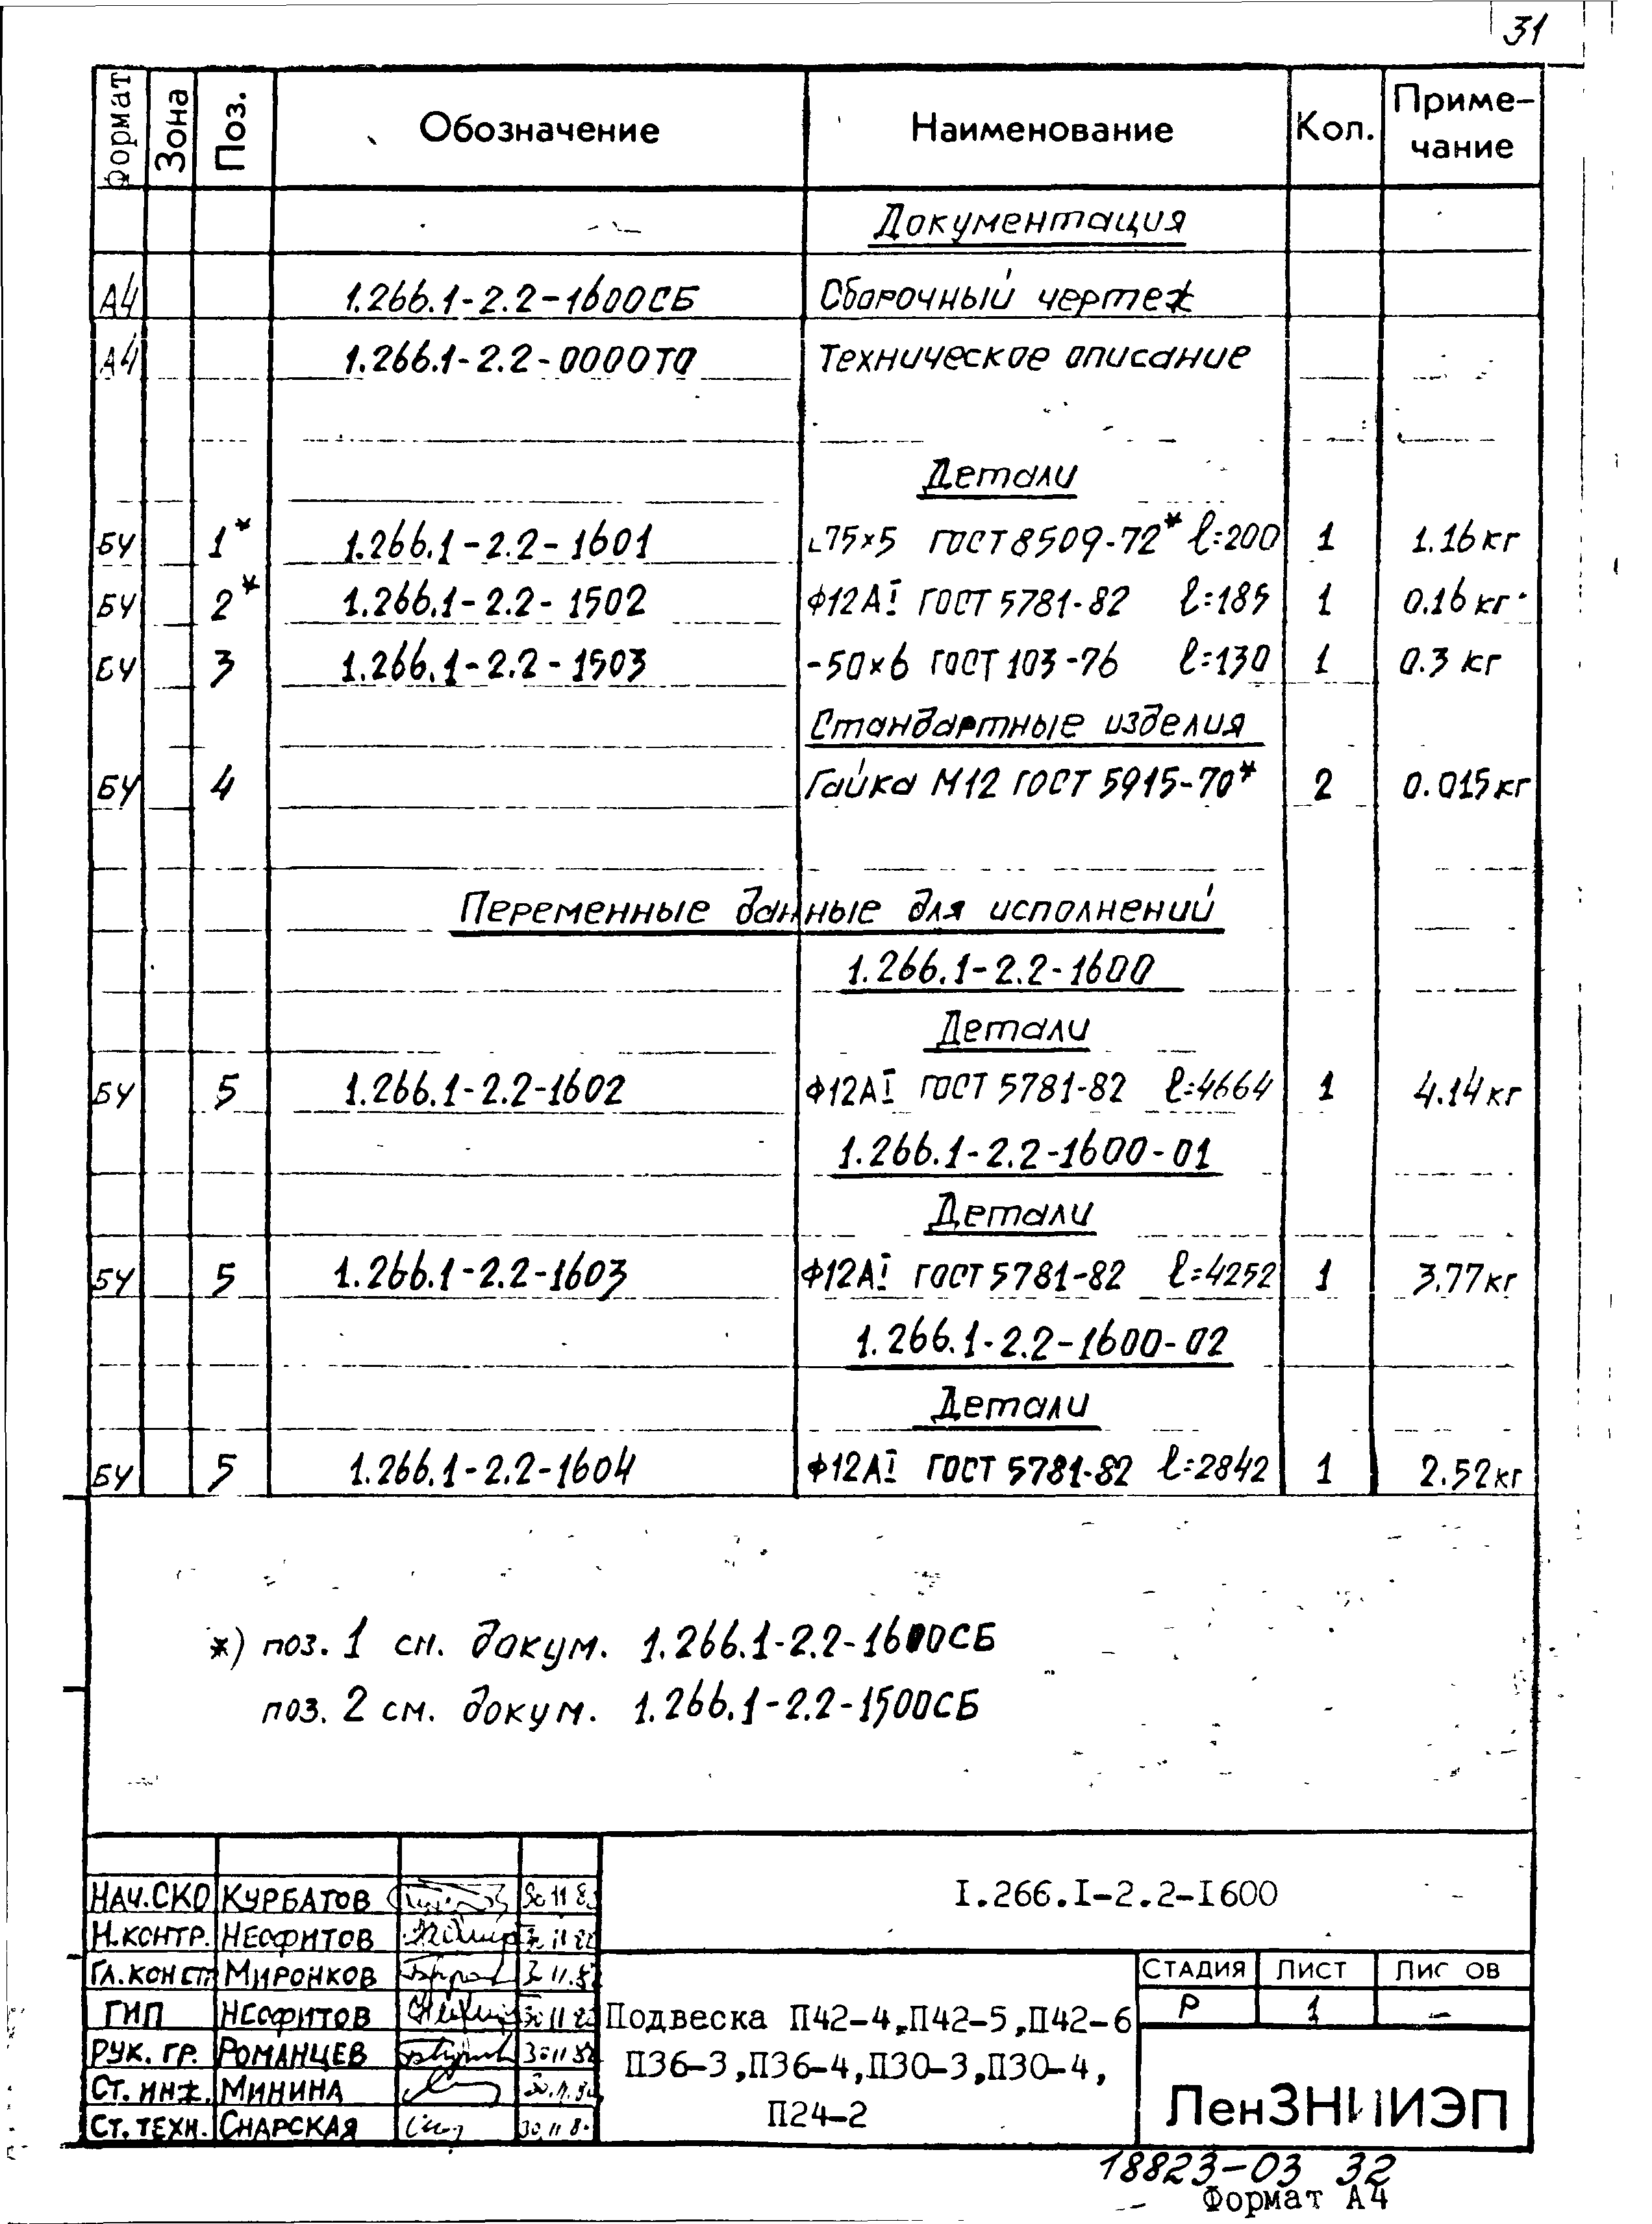 31
Формат Зона Поз. Обозначение Наименование Кол. Приме-
чание
Документация
А4 1.266.1-2.2-1600СБ Сборочный чертеж
А4 1.266.1-2.2-0000ТО Техническое описание
Детали
БЧ 1* 1.266.1-2.2-1601 ∟75×5 ГОСТ 8509-72* ℓ=200 1 1.16 кг
БЧ 2* 1.266.1-2.2-1502 Ф12АI ГОСТ 5781-82 ℓ=185 1 0.16 кг
БЧ 3 1.266.1-2.2-1503 -50×6 ГОСТ 103-76 ℓ=130 1 0.3 кг
Стандартные изделия
БЧ 4 Гайка М12 ГОСТ 5915-70* 2 0.015 кг
Переменные данные для исполнений
1.266.1-2.2-1600
Детали
БЧ 5 1.266.1-2.2-1602 Ф12АI ГОСТ 5781-82 ℓ=4664 1 4.14 кг
1.266.1-2.2-1600-01
Детали
БЧ 5 1.266.1-2.2-1603 Ф12АI ГОСТ 5781-82 ℓ=4252 1 3.77 кг
1.266.1-2.2-1600-02
Детали
БЧ 5 1.266.1-2.2-1604 Ф12АI ГОСТ 5781-82 ℓ=2842 1 2.52 кг
*) поз. 1 см. докум. 1.266.1-2.2-1600СБ
поз. 2 см. докум. 1.266.1-2.2-1500СБ
I.266.I-2.2-I600
НАЧ.СКО КУРБАТОВ
Н.КОНТР. НЕОФИТОВ
ГЛ.КОНСТ МИРОНКОВ
ГИП НЕОФИТОВ
РУК. ГР. РОМАНЦЕВ
СТ. ИНЖ. МИНИНА
СТ. ТЕХН. СНАРСКАЯ
Подвеска П42-4,П42-5,П42-6
П36-3,П36-4,П30-3,П30-4,
П24-2
СТАДИЯ ЛИСТ ЛИС ОВ
Р 1 –
ЛенЗНИИЭП
18823-03 32
Формат А4